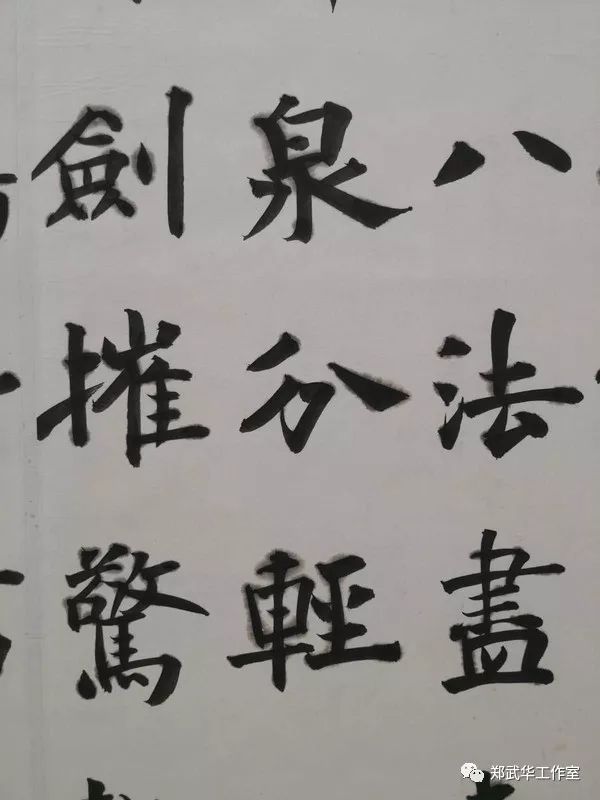 八法盡
泉分輕
劍摧驚
郑武华工作室